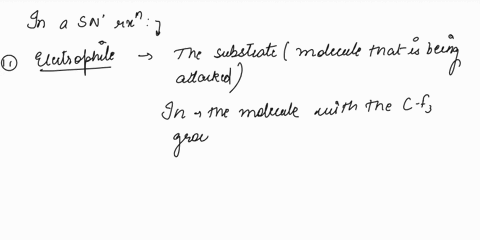 In a SN' rxn :-
(ii) Electrophile → The substrate ( molecule that is being
attacked)
In → the molecule with the C-f,
grou